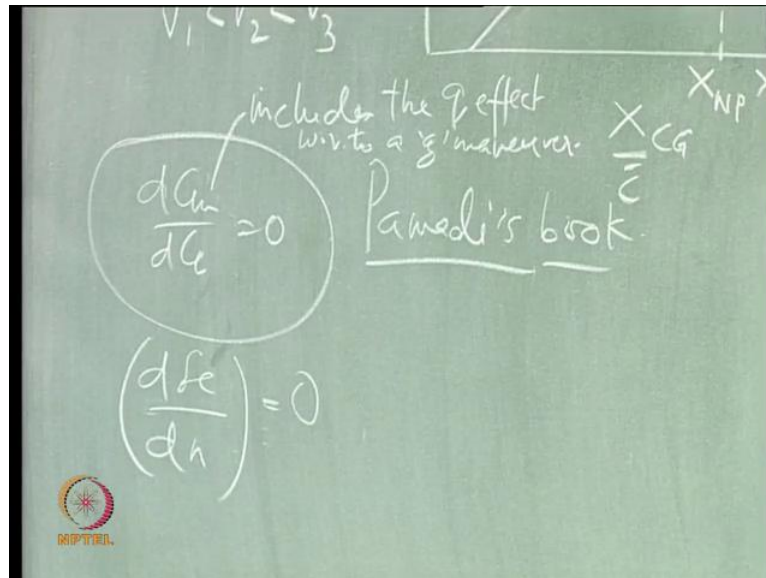 V₁ < V₂ < V₃
includes the q effect
w.r. to a 'g' maneuver.
X_NP X
X/c̄ CG
dCm/dCL = 0
Pamadi's book.
(dδe/dn) = 0
NPTEL